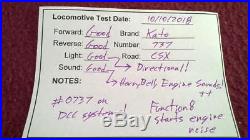 Locomotive Test Date: 10/10/2018
Forward: Good Brand: Kato
Reverse: Good Number: 737
Light: Good Road: CSX
Sound: Good Directional!
NOTES: Horn, Bell, Engine Sounds! ++
#0737 on DCC system!
Function 8 starts engine noise